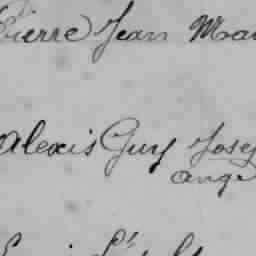 Pierre Jean Mar
Alexis Guy Josep
ange